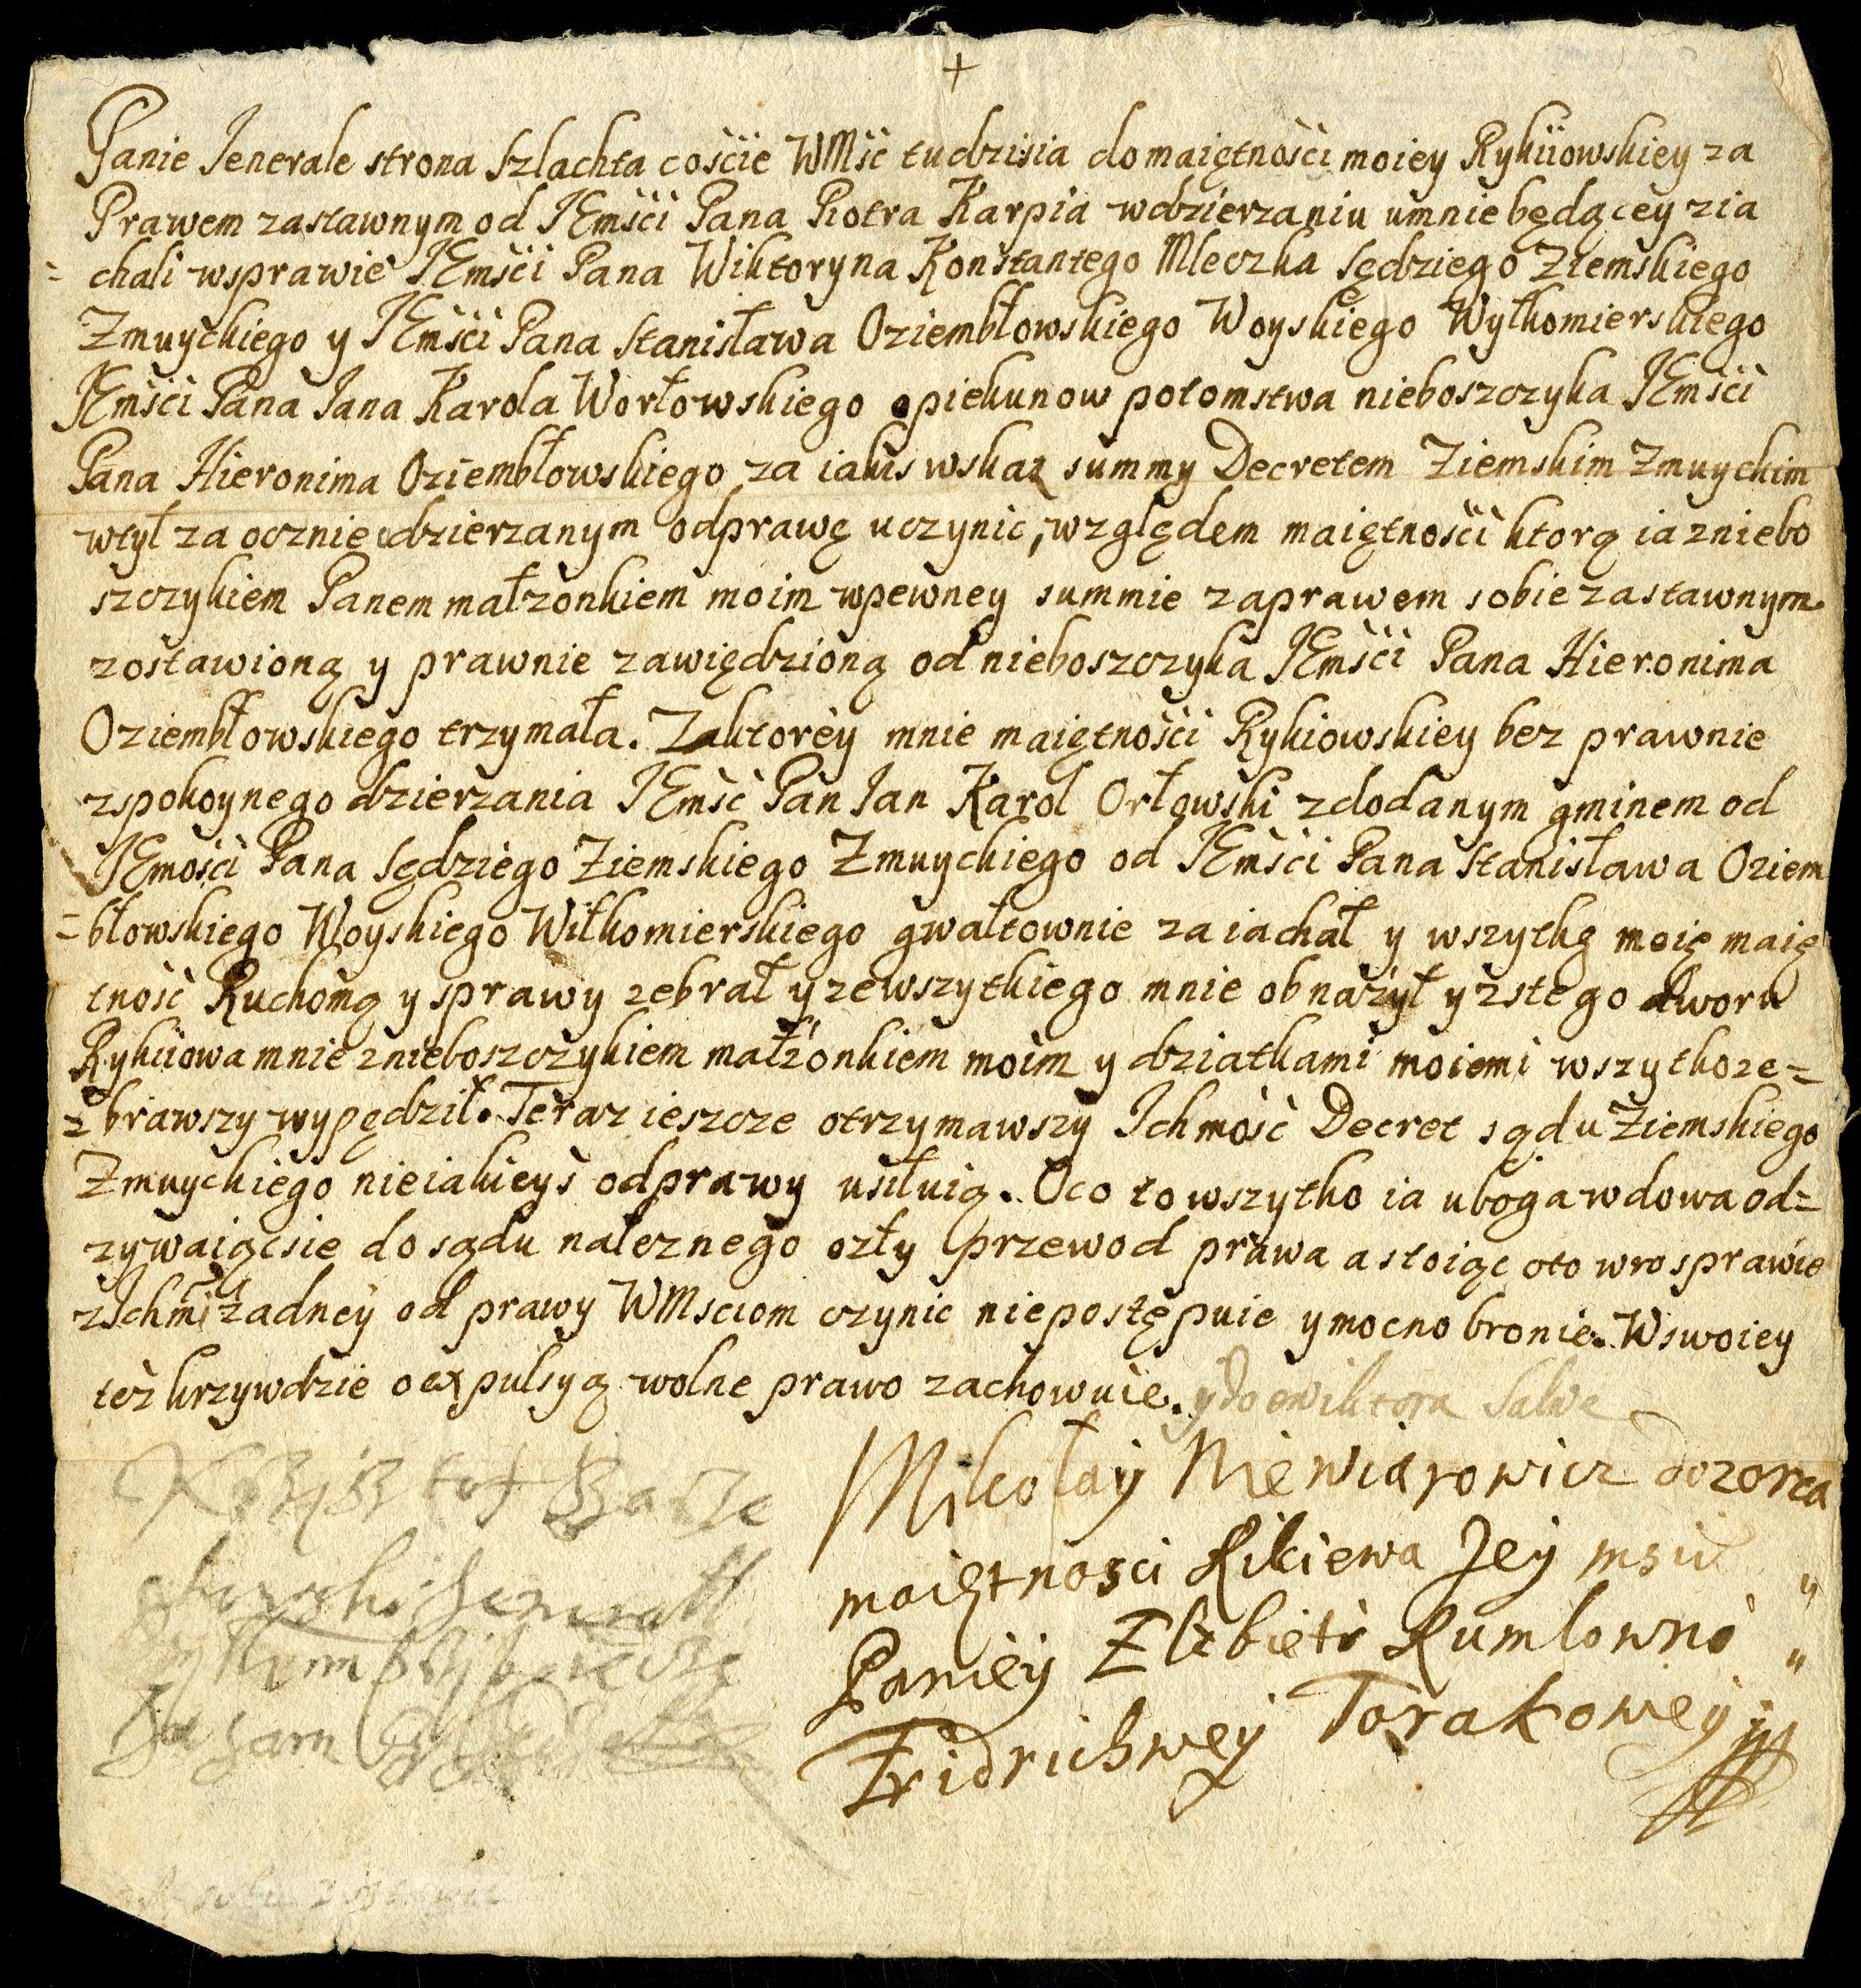 +
Panie Jenerale strona Szlachta coście WMść tu dzisia do maiętności moiey Rykiiowskiey za
Prawem zastawnym od JEmści Pana Piotra Karpia w dzierzaniu u mnie będącey zia
= chali w sprawie JEmści Pana Wiktoryna Konstantego Mleczka Sędziego Ziemskiego
Zmuyckiego y JEmści Pana Stanisława Oziembłowskiego Woyskiego Wyłkomierskiego
JEmści Pana Jana Karola Worłowskiego opiekunow potomstwa nieboszczyka JEmści
Pana Hieronima Oziembłowskiego za iakiś wskaz summy Decretem Ziemskim Zmuyckim
wtył za ocznie dzierzanym odprawę uczynic, względem maiętności ktorą ia z niebo
szczykiem Panem małzonkiem moim w pewney summie za prawem sobie zastawnym
zostawioną y prawnie zawiędzioną od nieboszczyka JEmści Pana Hieronima
Oziembłowskiego trzymała. Z ktorey mnie maiętności Rykiowskiey bez prawnie
z spokoynego dzierzania JEmść Pan Jan Karol Orłowski z dodanym gminem od
JEmości Pana Sędziego Ziemskiego Zmuyckiego od JEmści Pana Stanisława Oziem
= błowskiego Woyskiego Wiłkomierskiego gwałtownie zaiachał y wszytkę moię maię
tność Ruchomą y sprawy zebrał y ze wszytkiego mnie obnażył y z stego dworu
Rykiiowa mnie z nieboszczykiem małżonkiem moim y dziatkami moiemi wszytko ze=
= brawszy wypędził. Teraz ieszcze otrzymawszy Ichmość Decret sądu Ziemskiego
Zmuyckiego nieiakieyś odprawy usiłuią. Oco to wszytko ia uboga wdowa od=
zywaiąc sie do sądu należnego o zły przewod prawa a stoiąc oto w rosprawie
z Ichmi żadney odprawy WMsciom czynic nie postępuie y mocno bronie. W swoiey
też krzywdzie o expulsyą wolne prawo zachowuie. y do ewiktora Salve
Mikołay Niewiarowicz dozorca
maiętnosci Rikiewa Jey msci
Paniey Elzbiety Rumlowny
Fridrichwey Torakowey